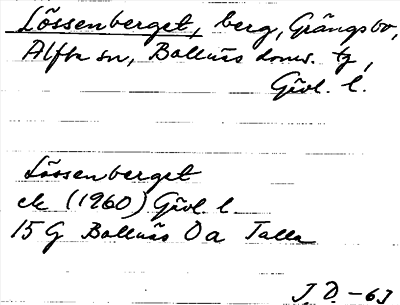 Lössenberget, berg, Grängsbo,
Alfta sn, Bollnäs doms. tg,
Gävl. l.
Lössenberget
ek (1960) Gävl. l
15 G Bollnäs 0 a
J. D. -63